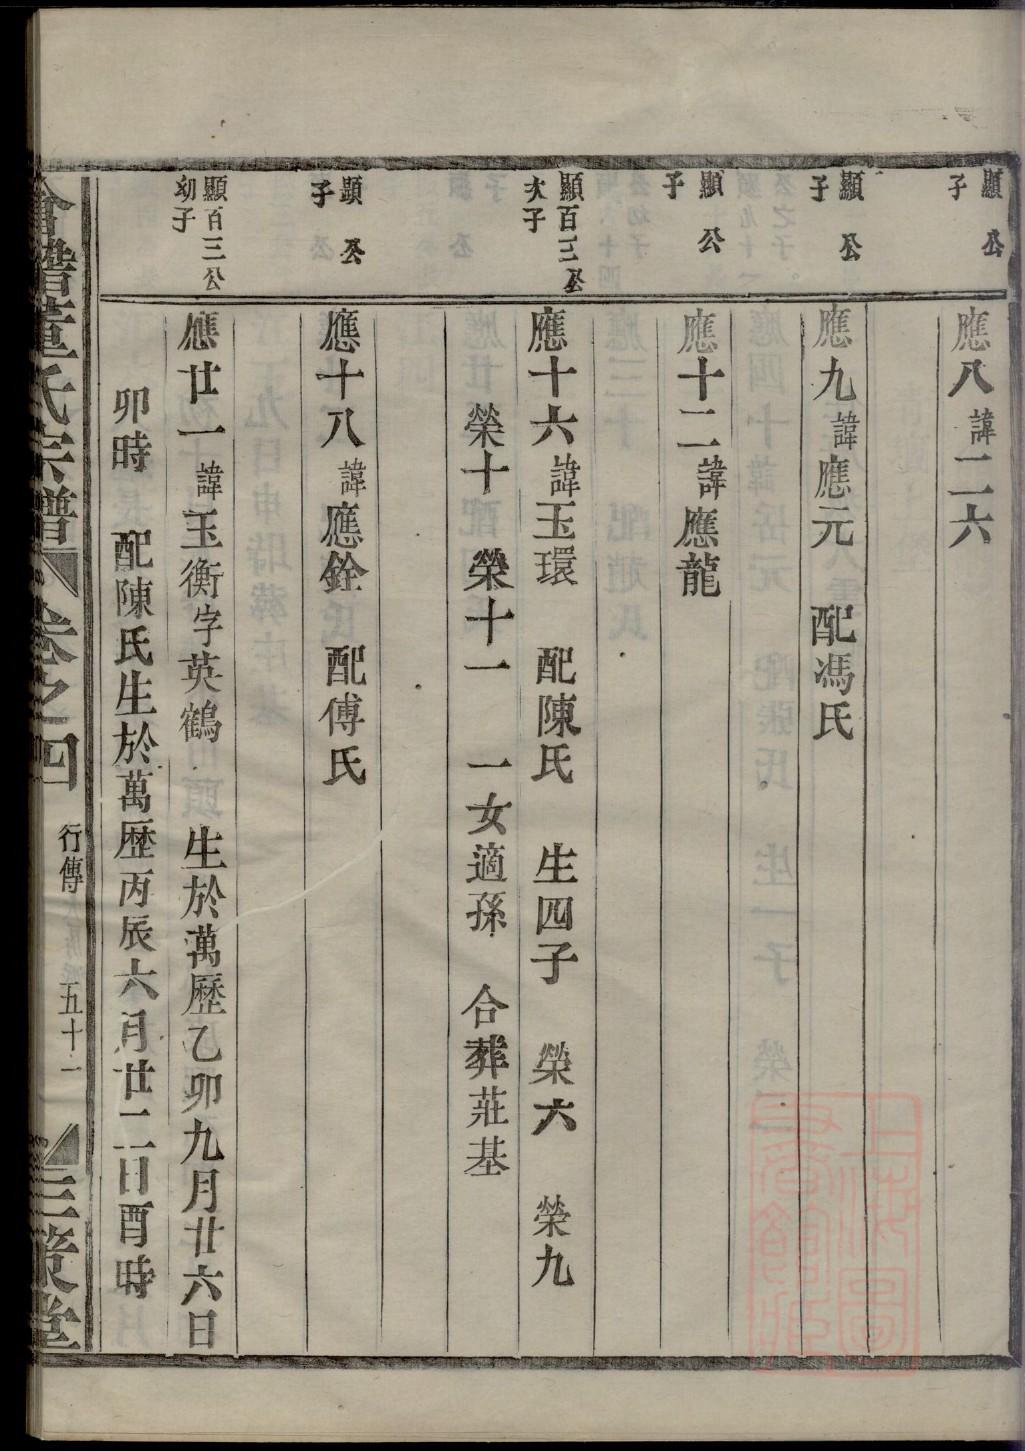 顯 公
子
應八諱二六
顯 公
子
應九諱應元 配馮氏
顯 公
子
應十二諱應龍
顯百三公
次子
應十六諱玉環 配陳氏 生四子 榮六 榮九
榮十 榮十一 一女適孫 合葬莊基
顯 公
子
應十八諱應銓 配傅氏
顯百三公
幼子
應廿一諱玉衡字英鶴 生於萬歷乙卯九月廿六日
卯時 配陳氏生於萬歷丙辰六月廿二日酉時
董氏宗譜 卷之四 行傳 五十一 三策堂
上海圖書館藏